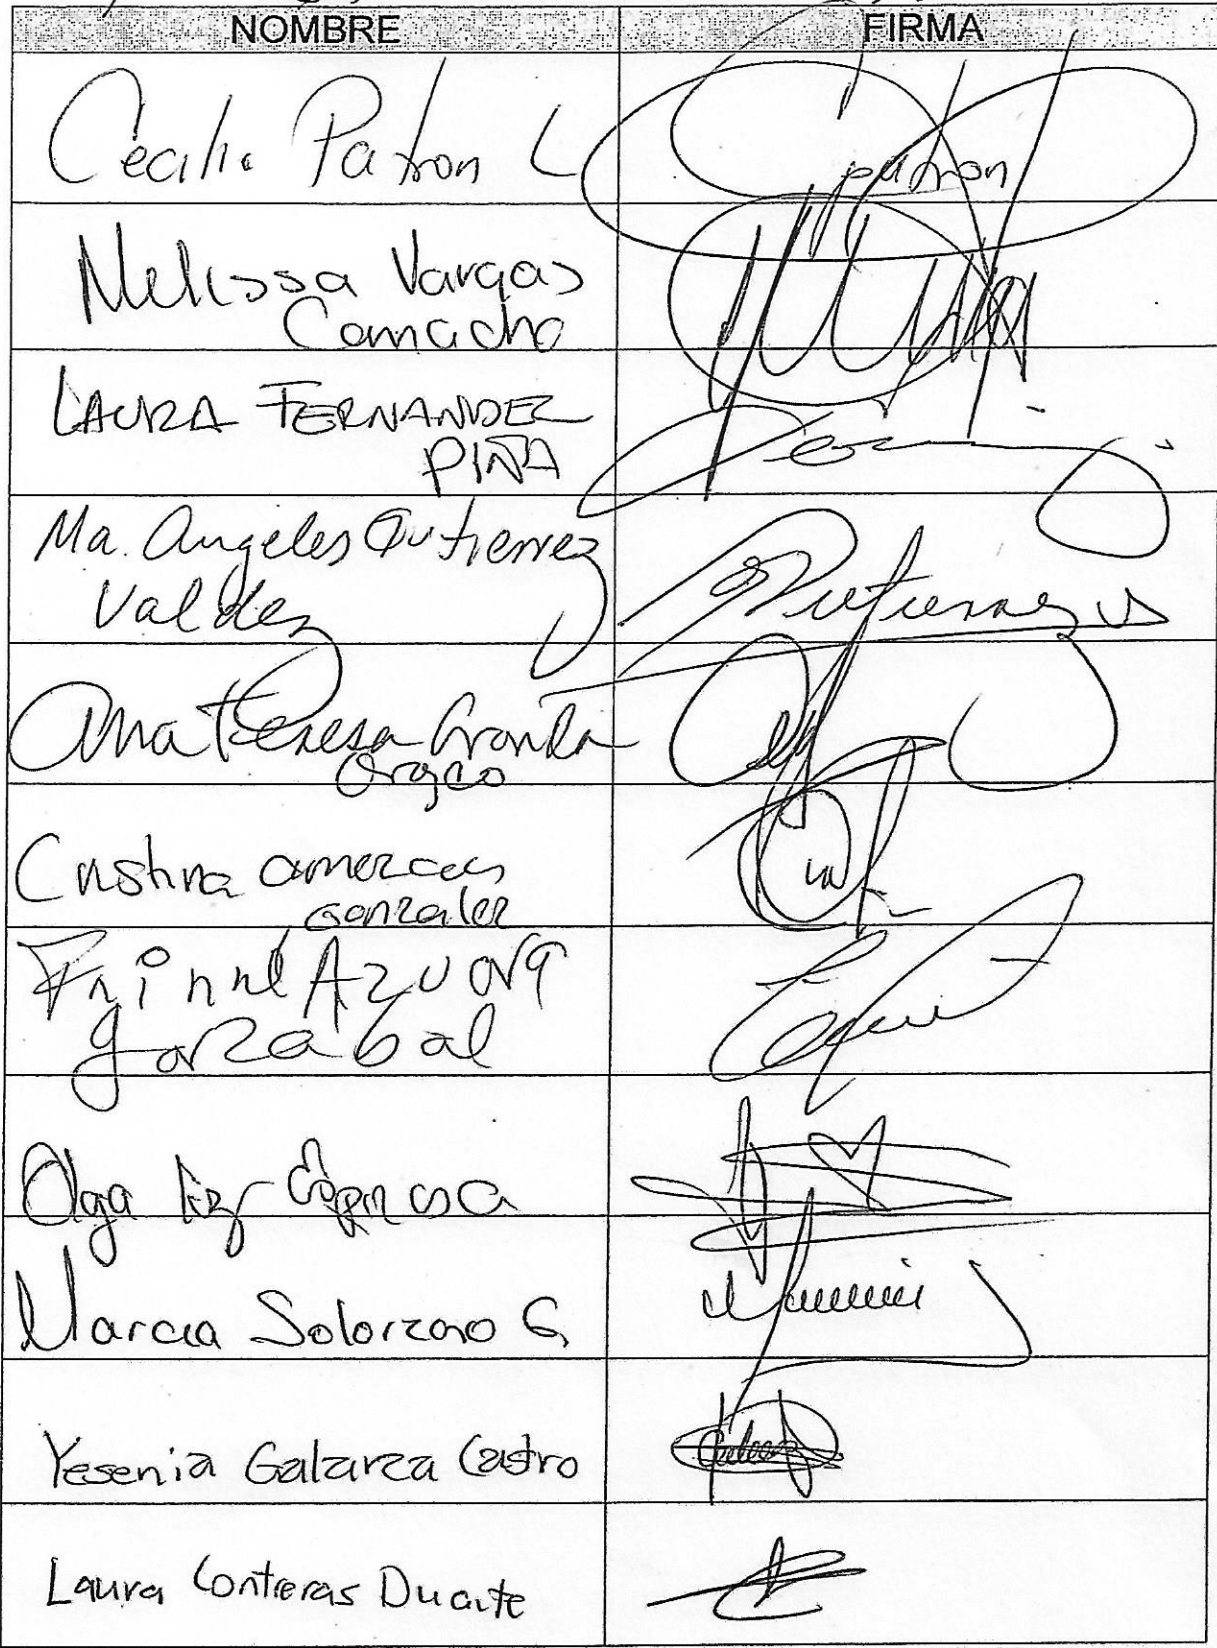 NOMBRE FIRMA
Cecilia Patron L patron
Melissa Vargas
Camacho
LAURA FERNANDEZ
PIÑA
Ma. Angeles Gutierrez
Valdez Gutierrez V
Ana Teresa Aranda
Orozco
Cristina amezcua
Gonzalez
Frinné Azuara
yarzabal
Olga Espinosa
Marcia Solorzano G
Yesenia Galarza Castro
Laura Contreras Duarte